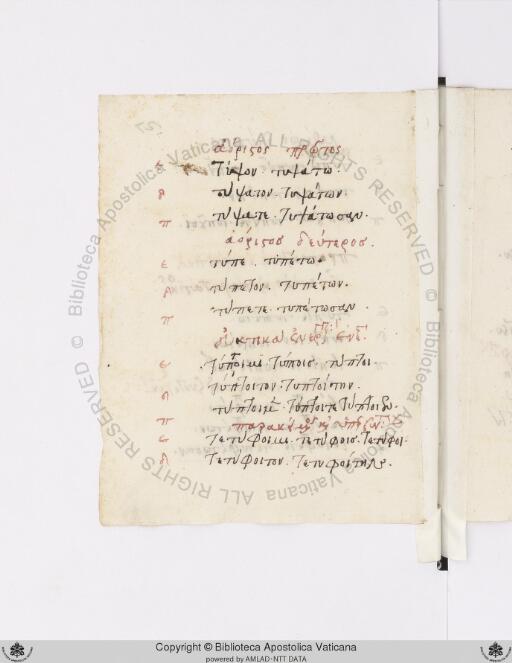 ἀόριστος πρῶτος
ε τύψον τυψάτω.
δ τύψατον. τυψάτων.
π τύψατε. τυψάτωσαν.
ἀόριστος δεύτερος.
ε τύπε. τυπέτω.
δ τύπετον. τυπέτων.
π τύπετε. τυπέτωσαν.
ε τύπτοιμι. τύπτοις. τύπτοι.
δ τύπτοιτον. τυπτοίτην.
π τύπτοιμεν. τύπτοιτε τύπτοιεν.
ε τετύφοιμι. τετύφοις. τετύφοι.
δ τετύφοιτον. τετυφοίτην.
© Biblioteca Apostolica Vaticana ALL RIGHTS RESERVED
Copyright © Biblioteca Apostolica Vaticana
powered by AMLAD-NTT DATA